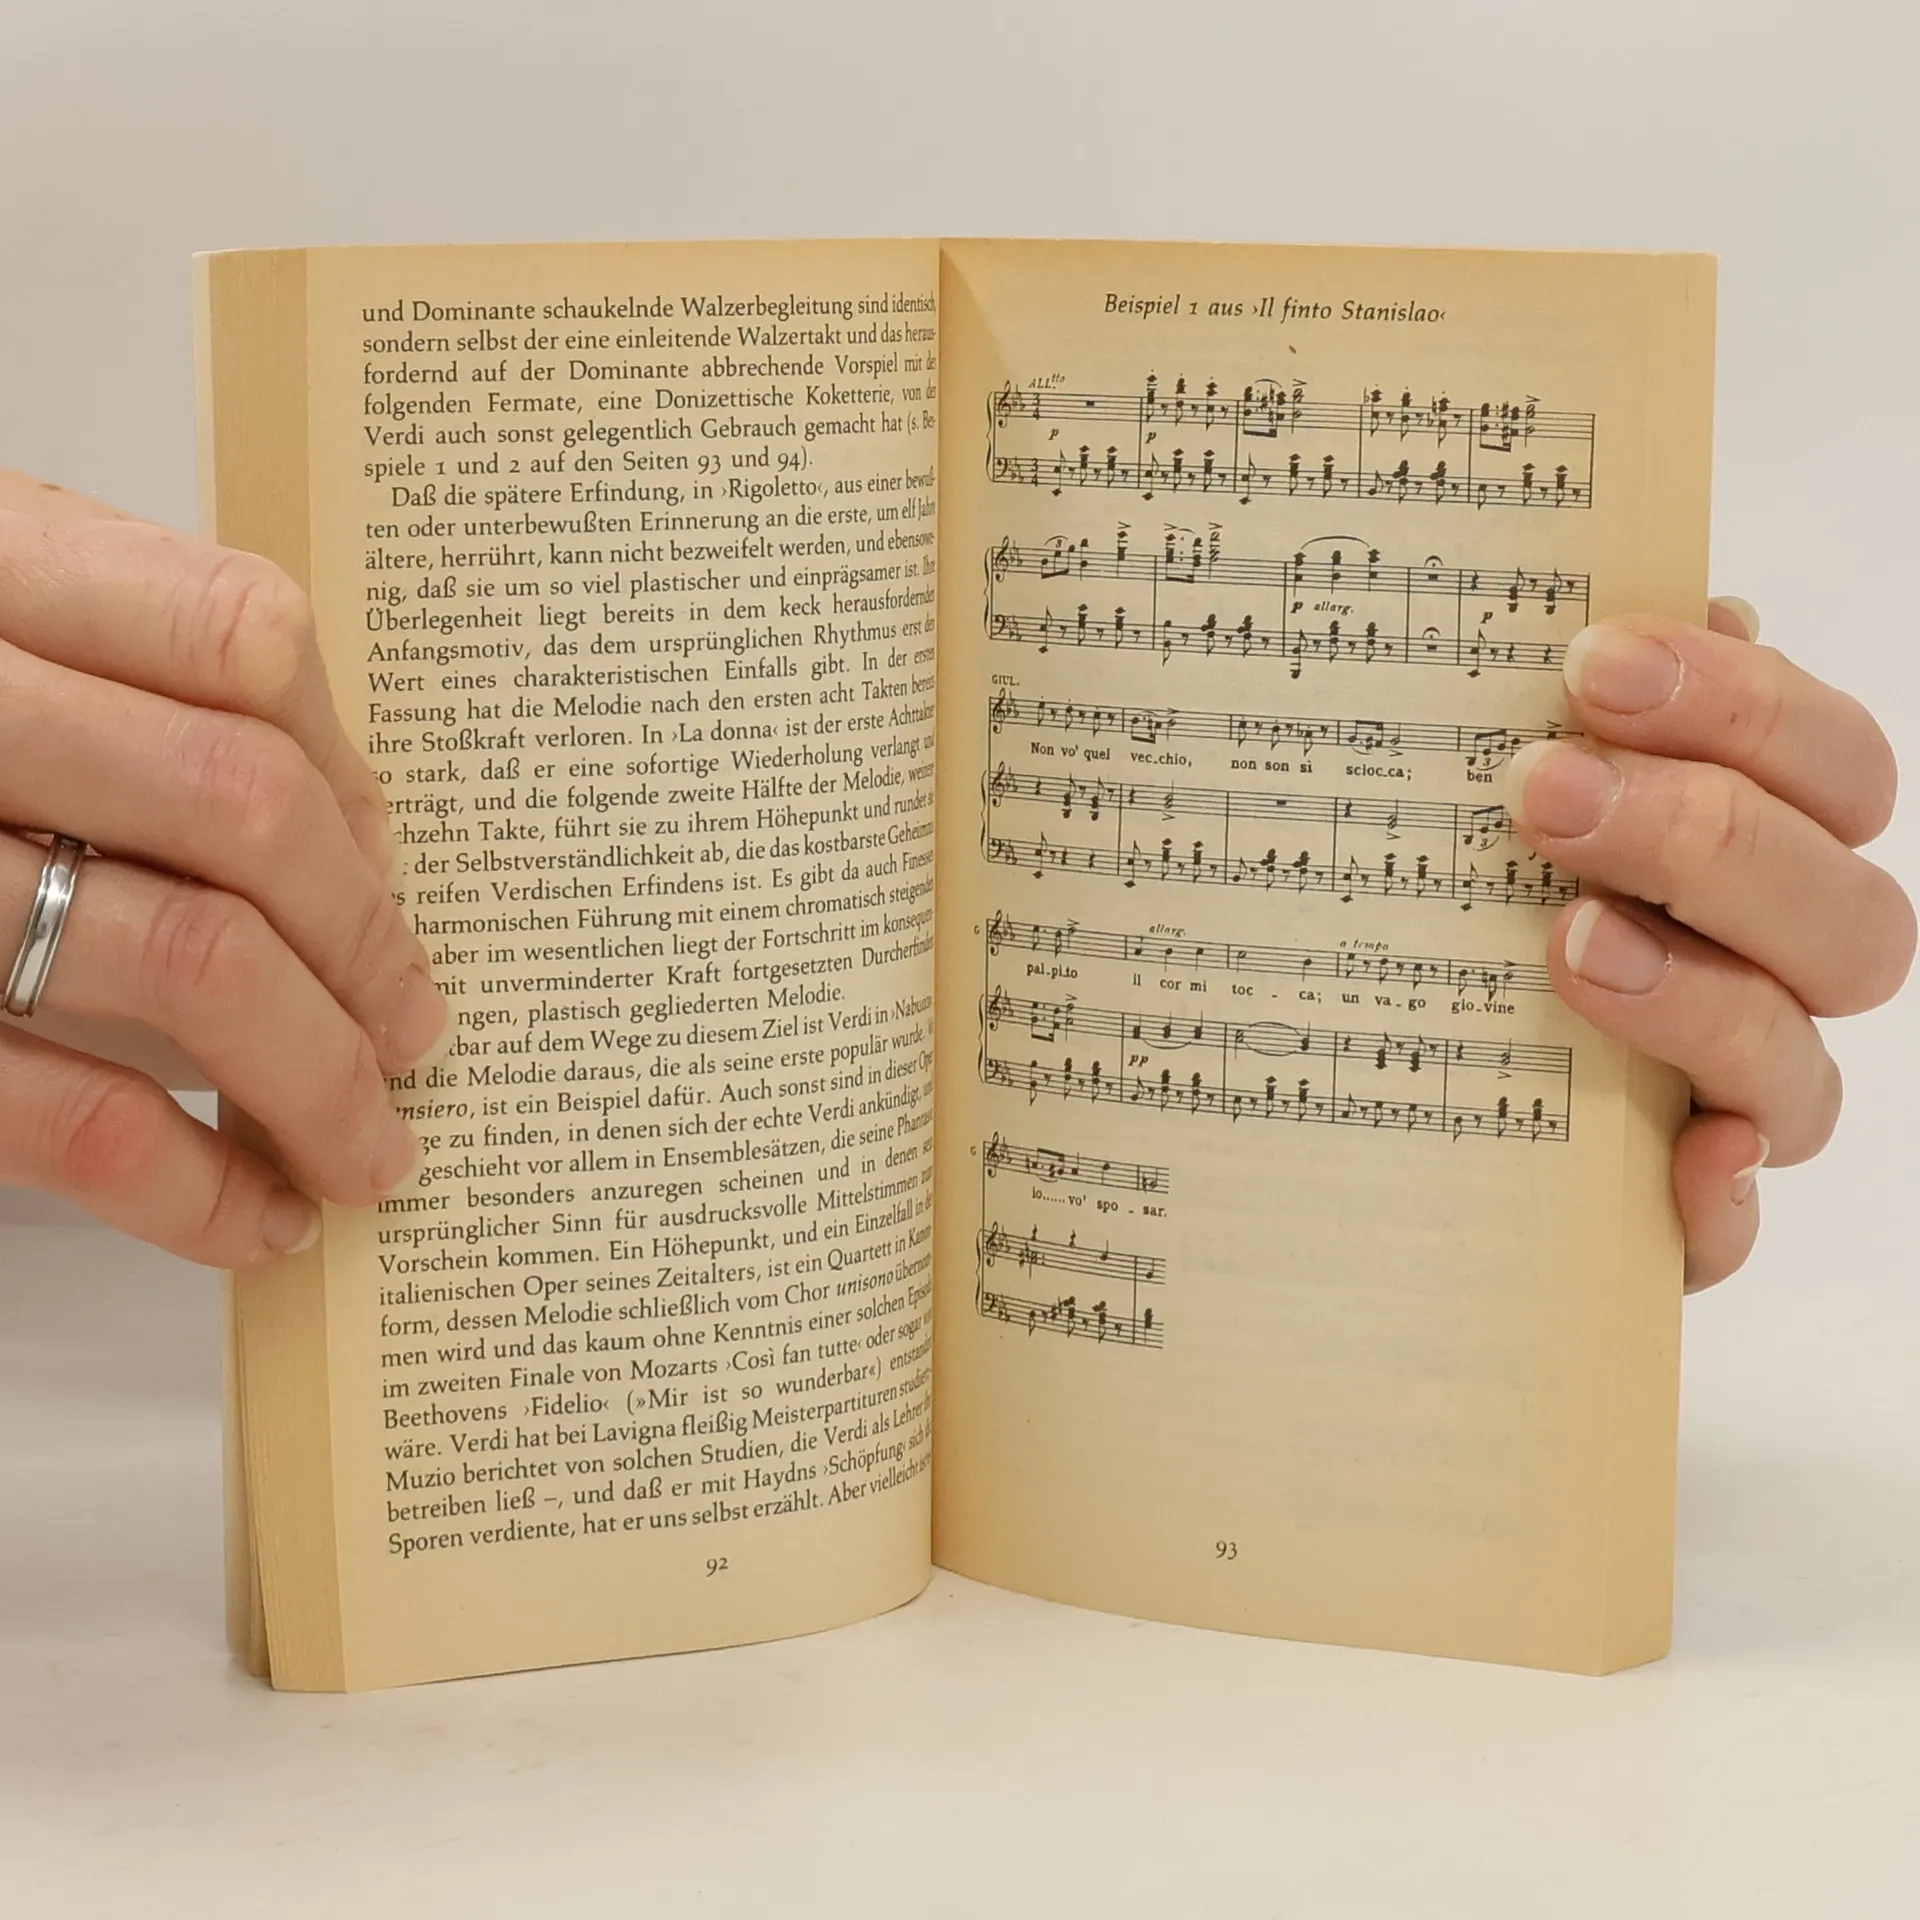 und Dominante schaukelnde Walzerbegleitung sind identisch,
sondern selbst der eine einleitende Walzertakt und das heraus-
fordernd auf der Dominante abbrechende Vorspiel mit der
folgenden Fermate, eine Donizettische Koketterie, von der
Verdi auch sonst gelegentlich Gebrauch gemacht hat (s. Bei-
spiele 1 und 2 auf den Seiten 93 und 94).
Daß die spätere Erfindung, in ›Rigoletto‹, aus einer bewuß-
ten oder unterbewußten Erinnerung an die erste, um elf Jahre
ältere, herrührt, kann nicht bezweifelt werden, und ebensowe-
nig, daß sie um so viel plastischer und einprägsamer ist. Ihre
Überlegenheit liegt bereits in dem keck herausfordernden
Anfangsmotiv, das dem ursprünglichen Rhythmus erst den
Wert eines charakteristischen Einfalls gibt. In der ersten
Fassung hat die Melodie nach den ersten acht Takten bereits
ihre Stoßkraft verloren. In ›La donna‹ ist der erste Achttakter
so stark, daß er eine sofortige Wiederholung verlangt und
erträgt, und die folgende zweite Hälfte der Melodie, weitere
chzehn Takte, führt sie zu ihrem Höhepunkt und rundet sie
der Selbstverständlichkeit ab, die das kostbarste Geheimnis
reifen Verdischen Erfindens ist. Es gibt da auch Finessen
harmonischen Führung mit einem chromatisch steigenden
aber im wesentlichen liegt der Fortschritt im konsequen-
mit unverminderter Kraft fortgesetzten Durcherfinden
ngen, plastisch gegliederten Melodie.
tbar auf dem Wege zu diesem Ziel ist Verdi in ›Nabucco
und die Melodie daraus, die als seine erste populär wurde,
nsiero, ist ein Beispiel dafür. Auch sonst sind in dieser Oper
ge zu finden, in denen sich der echte Verdi ankündigt, und
geschieht vor allem in Ensemblesätzen, die seine Phantasie
immer besonders anzuregen scheinen und in denen sein
ursprünglicher Sinn für ausdrucksvolle Mittelstimmen zum
Vorschein kommen. Ein Höhepunkt, und ein Einzelfall in der
italienischen Oper seines Zeitalters, ist ein Quartett in Kanon-
form, dessen Melodie schließlich vom Chor unisono übernom-
men wird und das kaum ohne Kenntnis einer solchen Episode
im zweiten Finale von Mozarts ›Così fan tutte‹ oder sogar von
Beethovens ›Fidelio‹ (»Mir ist so wunderbar«) entstanden
wäre. Verdi hat bei Lavigna fleißig Meisterpartituren studiert
Muzio berichtet von solchen Studien, die Verdi als Lehrer ihn
betreiben ließ –, und daß er mit Haydns ›Schöpfung‹ sich die
Sporen verdiente, hat er uns selbst erzählt. Aber vielleicht ist
92
Beispiel 1 aus ›Il finto Stanislao‹
ALL.tto
p p
p allarg. p
GIUL.
Non vo' quel vec-chio, non son sì scioc-ca; ben
3
3
G allarg. a tempo
pal-pi-to il cor mi toc - ca; un va - go gio-vine
pp
G
io......vo' spo - sar.
93